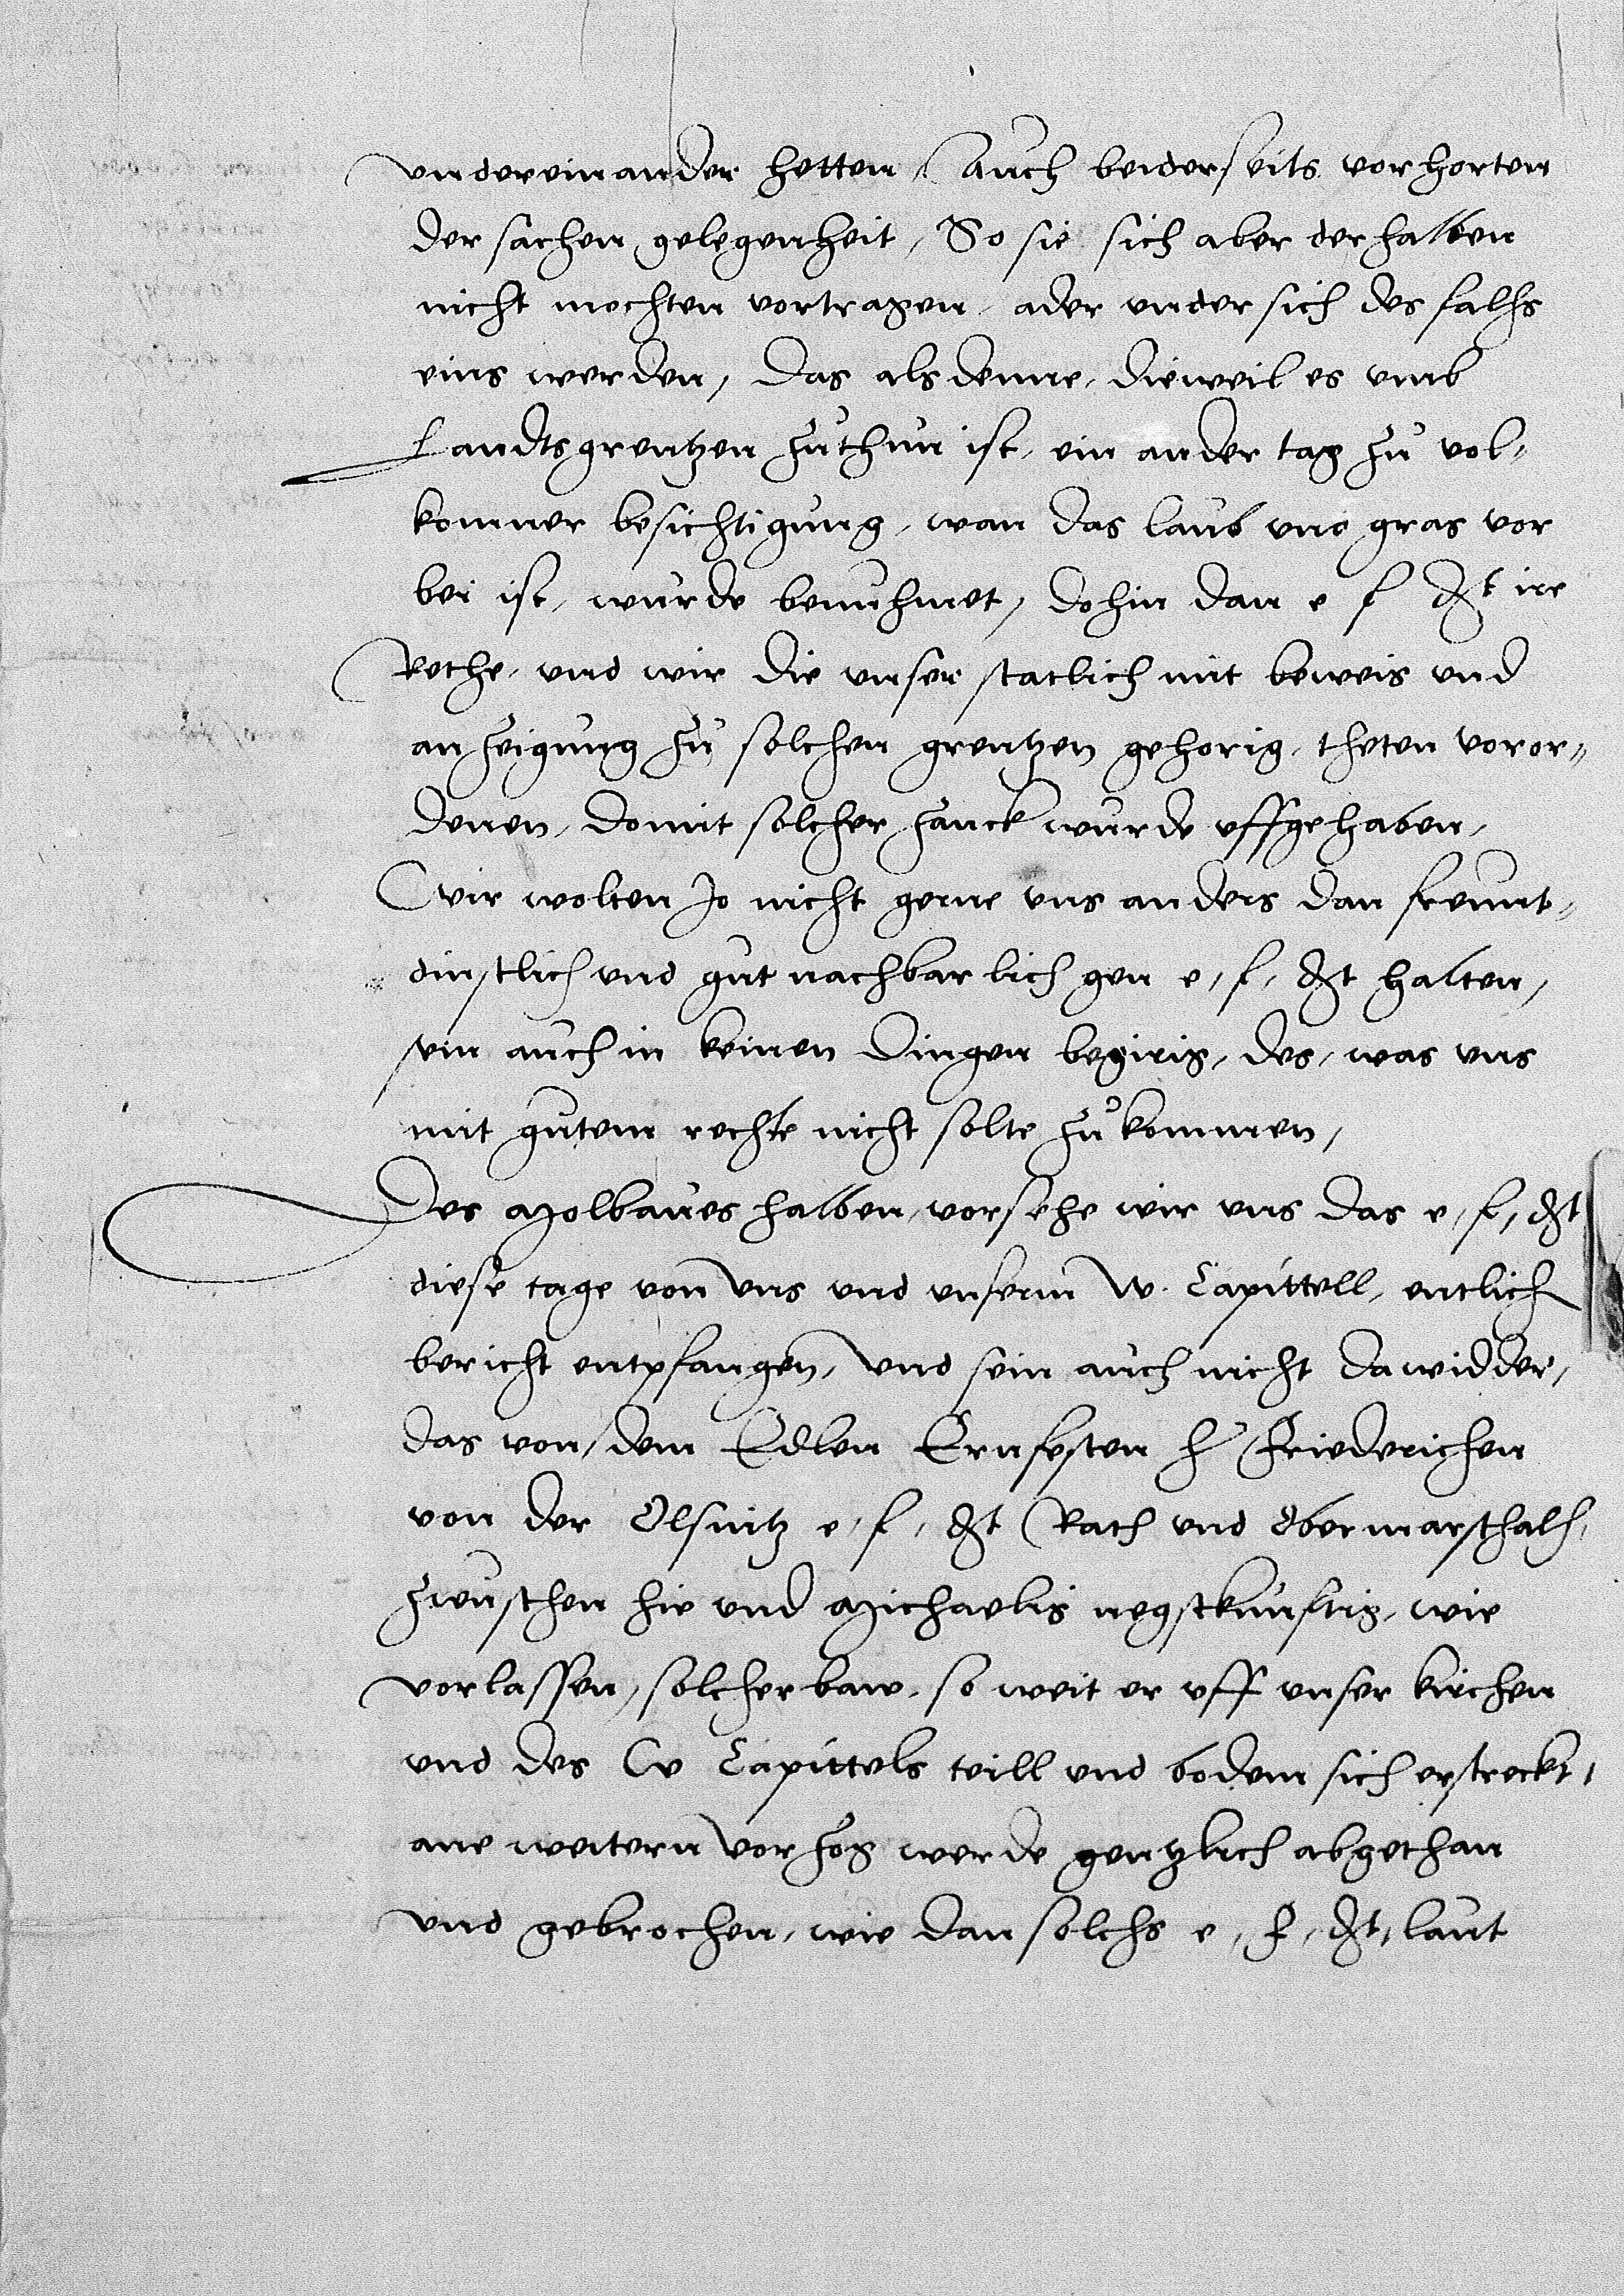 undereinander hetten, Auch beiderseits vorhorten
der sachen gelegenheit, So sie sich aber derhalben
nicht mochten vortragen, ader under sich des falhs
eins werden, Das alsdenne, dieweil es umb
Landtsgrentzen zuthun ist, ein ander tag zu vol-
komner besichtigung, wan das laub und gras vor
bei ist, wurde benuhmet, dohin dan e f g~t ire
Rethe, und wir die unser statlich mit beweis und
anzeigung zu solchen grentzen gehorig, theten voror-
denen, domit solcher zanck wurde uffgehaben,
Wir wolten Jo nicht gerne uns anders dan freunt-
dinstlich und gut nachbarlich gen e, f, g~t halten,
sein auch in keinen dingen begirig, des, was uns
mit gutem rechte nicht solte zukommen,
Des Molbaues halben, vorsehe wir uns das e, f, g~t
diese tage von uns und unserm W. Capittell, entlich
bericht entpfangen, Und sein auch nicht dawidder,
das von dem Edlen Ernfesten h~ Friederichen
von der Olsnitz e, f, g~t Rath und Obermarschalh,
zwuschen hie und Michaelis negstkunftig, wie
vorlassen, solcher baw, so weit er uff unser kirchen
und des W Capittels teill und bodem sich erstreckt,
ane weitern Vorzog werde gentzlich abgethan
und gebrochen, wie dan solchs e, f, g~t, laut